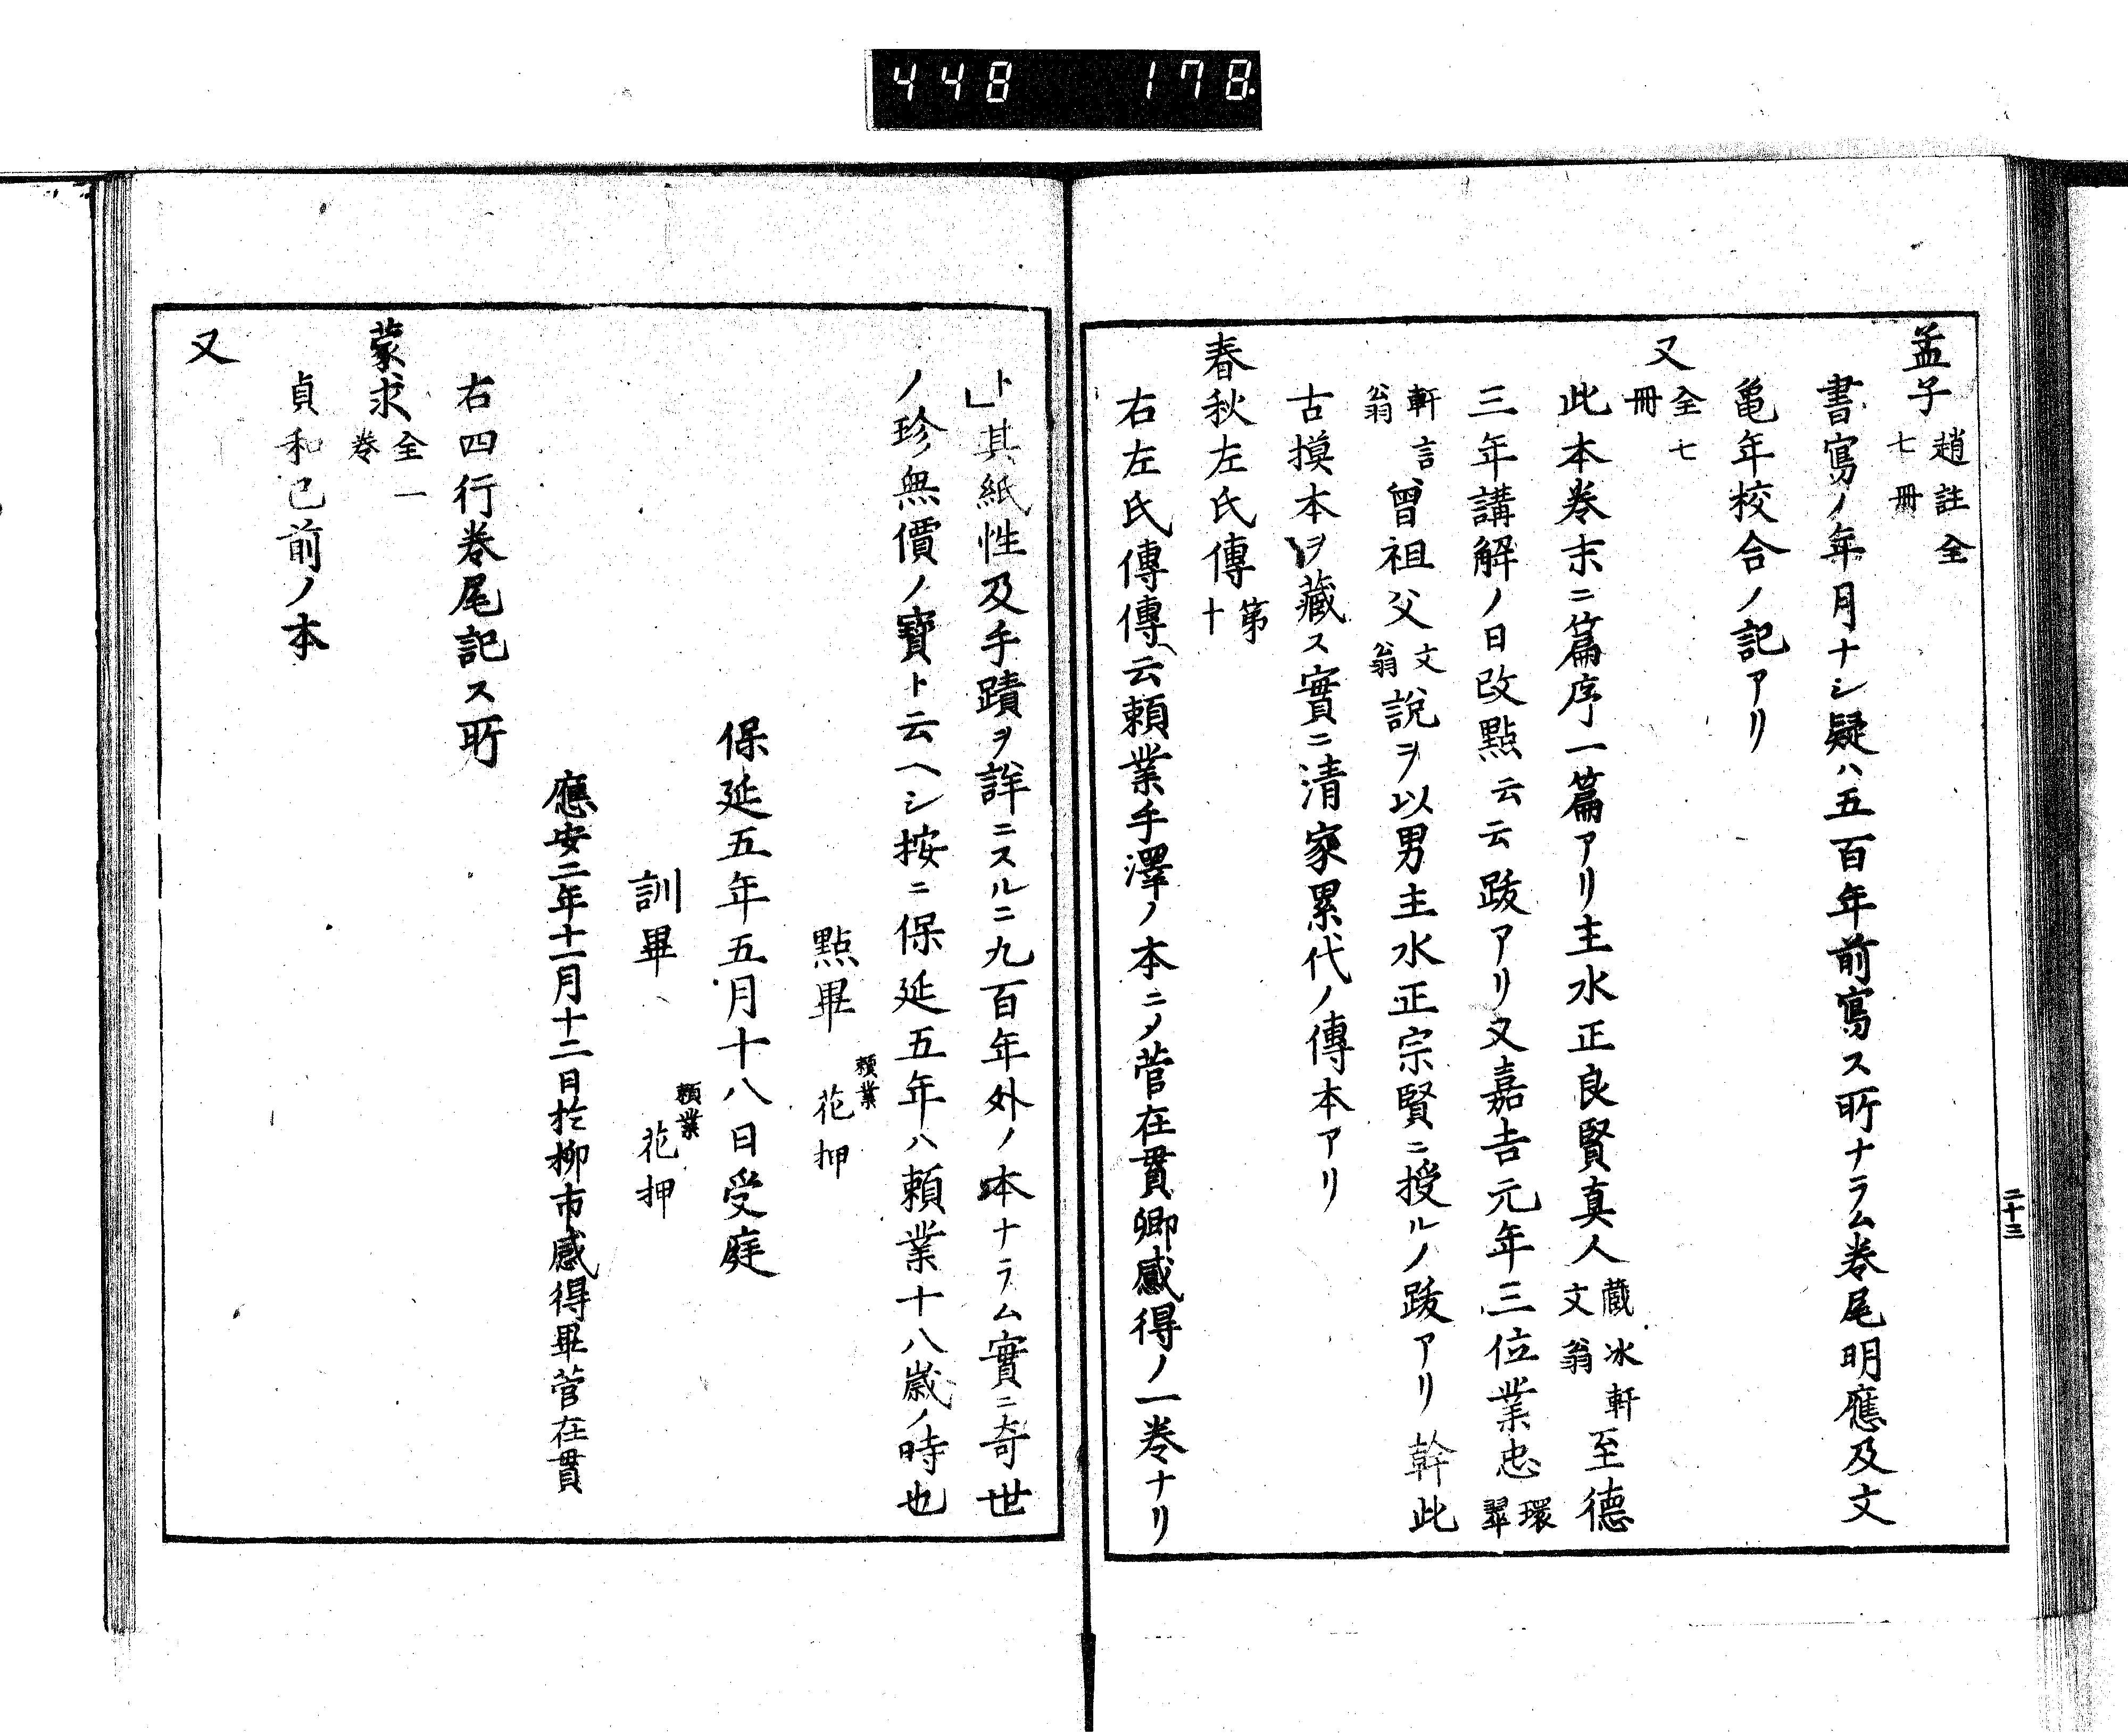 448 178
孟子 趙註全七冊
書寫ノ年月ナシ疑ハ五百年前寫ス所ナラム巻尾明應及文
亀年校合ノ記アリ
又 全七冊
此本巻末ニ篇序一篇アリ主水正良賢真人 蔵氷軒文翁 至德
三年講解ノ日改點云云跋アリ又嘉吉元年三位業忠 環翠
軒言翁 曾祖父 文翁 說ヲ以男主水正宗賢ニ授ルノ跋アリ幹此
古摸本ヲ藏ス實ニ清家累代ノ傳本アリ
春秋左氏傳 第十
右左氏傳傳云頼業手澤ノ本ニノ菅在貫卿感得ノ一巻ナリ
二十三
ト其紙性及手蹟ヲ詳ニスルニ九百年外ノ本ナラム實ニ奇世
ノ珍無價ノ寶ト云ヘシ按ニ保延五年ハ頼業十八歳ノ時也
點畢 頼業 花押
保延五年五月十八日受庭
訓畢 頼業 花押
應安二年十一月十二日於柳市感得畢菅在貫
右四行巻尾記ス所
蒙求 全一巻
貞和已前ノ本
又